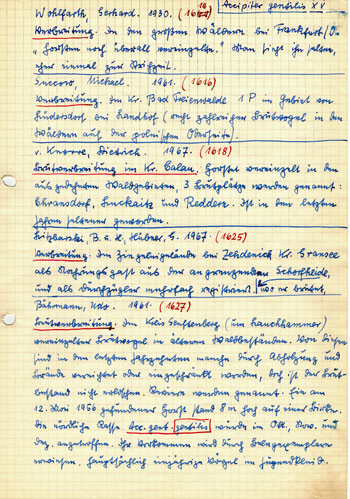 Accipiter gentilis XV
Wohlfarth, Gerhard. 1930. (1614)
Verbreitung. In den großen Wäldern bei Frankfurt/O.
"Horsten noch überall vereinzelte." Man sieht ihn selten,
eher einmal zur Zugzeit.
Succow, Michael. 1961. (1616)
Verbreitung. Im Kr. Bad Freienwalde 1 P im Gebiet von
Lüdersdorf bei Landhof (recht zahlreicher Brutvogel in den
Wäldern auf der polnischen Oderseite).
v. Knorre, Dietrich. 1967. (1618)
Brutverbreitung im Kr. Calau. Horstet vereinzelt in den
ausgedehnten Waldgebieten, 3 Brutplätze werden genannt:
Ehransdorf, Luckaitz und Reddern. Ist in den letzten
Jahren seltener geworden.
B. u. K., Hübner, G. 1967. (1625)
Verbreitung. Im Ziegeleigelände bei Zehdenick Kr. Gransee
als Nahrungsgast aus der angrenzenden Schorfheide,
und als Durchzügler mehrfach registriert. wo er brütet,
Bährmann, Udo. 1961. (1627)
Brutverbreitung. Im Kreis Senftenberg (um Lauchhammer)
vereinzelter Brutvogel in älteren Waldbeständen. Von diesen
sind in den letzten Jahrzehnten manche durch Abholzung und
Brände vernichtet oder eingeschränkt worden, doch ist der Brut-
bestand nicht erloschen. Reviere werden genannt. Ein am
12. Mai 1956 gefundener Horst stand 8 m hoch auf einer Birke.
Die nördliche Rasse Acc. gent. gentilis wurde im Okt., Nov. und
Dez. angetroffen. Ihr Vorkommen wird durch Belegexemplare
erwiesen. Hauptsächlich einjährige Vögel im Jugendkleid.